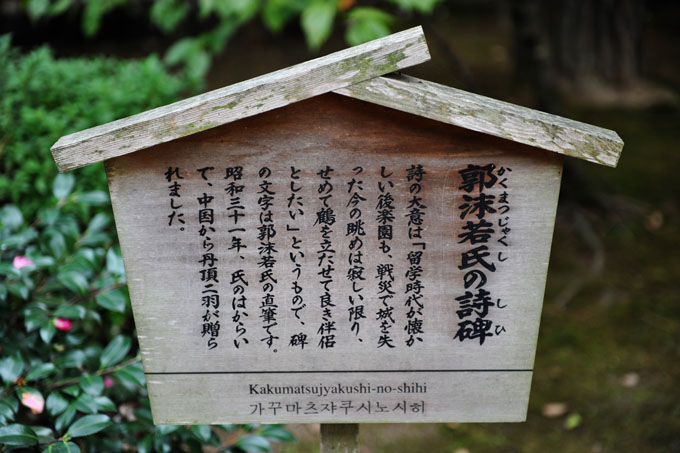 郭沫若氏の詩碑
かくまつじゃくし しひ
詩の大意は「留学時代が懐か
しい後楽園も、戦災で城を失
った今の眺めは寂しい限り、
せめて鶴を立たせて良き伴侶
としたい」というもので、碑
の文字は郭沫若氏の直筆です。
昭和三十一年、氏のはからい
で、中国から丹頂二羽が贈ら
れました。
Kakumatsujyakushi-no-shihi
가꾸마츠쟈쿠시노시히